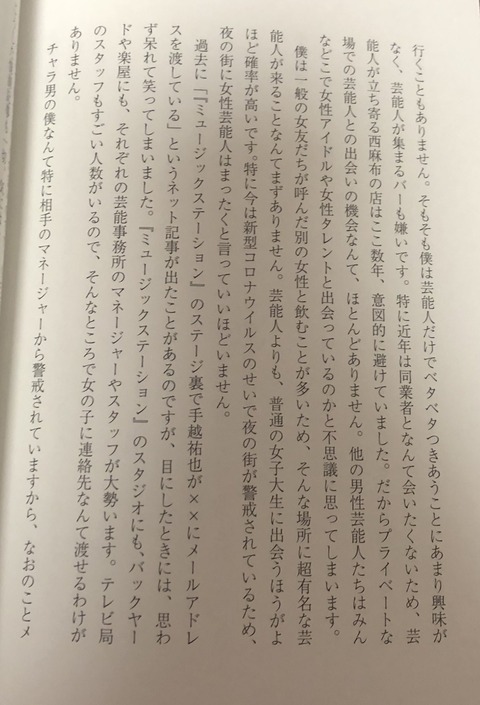 行くこともありません。そもそも僕は芸能人だけでベタベタつきあうことにあまり興味が
なく、芸能人が集まるバーも嫌いです。特に近年は同業者となんて会いたくないため、芸
能人が立ち寄る西麻布の店はここ数年、意図的に避けていました。だからプライベートな
場での芸能人との出会いの機会なんて、ほとんどありません。他の男性芸能人たちはみん
などこで女性アイドルや女性タレントと出会っているのかと不思議に思ってしまいます。
僕は一般の女友だちが呼んだ別の女性と飲むことが多いため、そんな場所に超有名な芸
能人が来ることなんてまずありません。芸能人よりも、普通の女子大生に出会うほうがよ
ほど確率が高いです。特に今は新型コロナウイルスのせいで夜の街が警戒されているため、
夜の街に女性芸能人はまったくと言っていいほどいません。
過去に「『ミュージックステーション』のステージ裏で手越祐也が××にメールアドレ
スを渡している」というネット記事が出たことがあるのですが、目にしたときには、思わ
ず呆れて笑ってしまいました。『ミュージックステーション』のスタジオにも、バックヤー
ドや楽屋にも、それぞれの芸能事務所のマネージャーやスタッフが大勢います。テレビ局
のスタッフもすごい人数がいるので、そんなところで女の子に連絡先なんて渡せるわけが
ありません。
チャラ男の僕なんて特に相手のマネージャーから警戒されていますから、なおのことメ